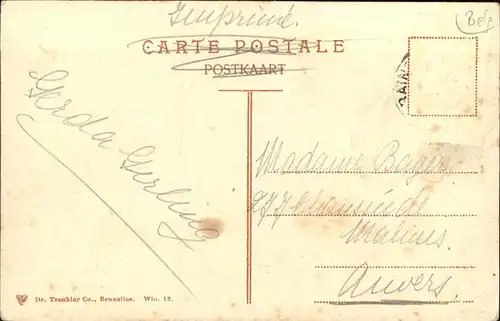 Imprimé.
Belg
CARTE POSTALE
POSTKAART
Gerda Gerling
Madame
277 Chaussée de
Malines.
Anvers.
Dr. Trenkler Co., Bruxelles. Win. 13.